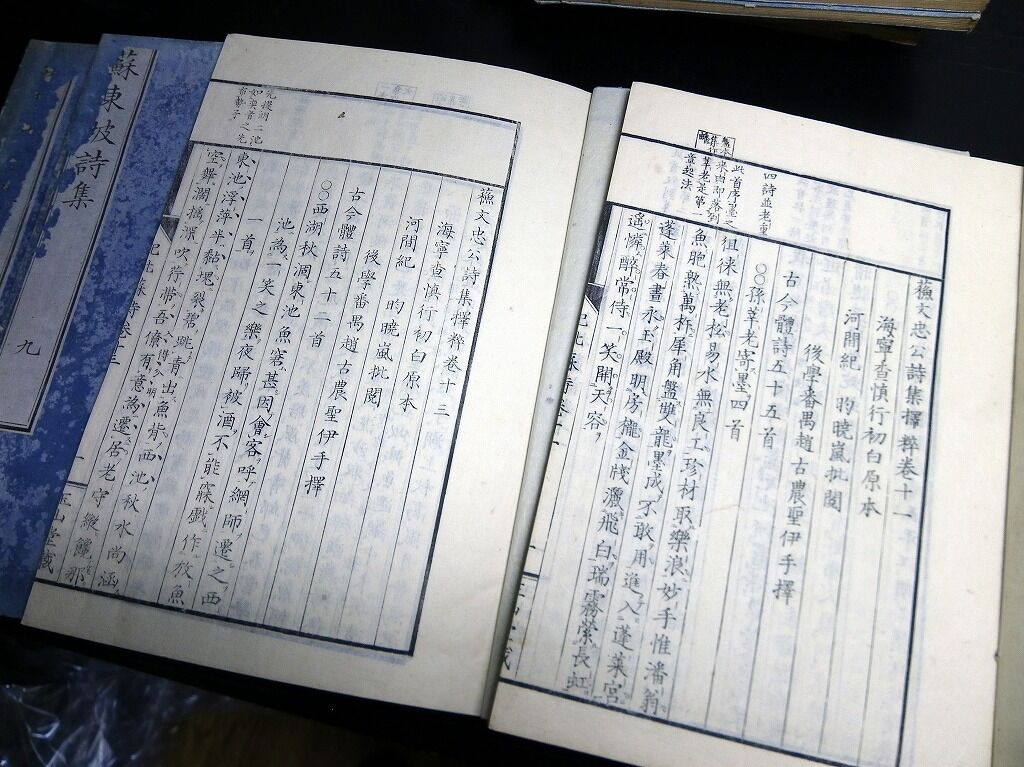 蘇文忠公詩集擇粹卷十一
海寧查慎行初白原本
河間紀昀曉嵐批閱
後學番禺趙古農聖伊手擇
古今體詩五十五首
○○孫莘老寄墨四首
徂徠無老松易水無良工珍材取樂浪妙手惟潘翁
魚胞熟萬杵犀角盤雙龍墨成不敢用進入蓬萊宮
蓬萊春晝永玉殿明房櫳金牋灑飛白瑞霧縈長虹
遙憐醉常侍一笑開天容
四詩並老重
此首序墨之
來由即卷到
莘老是第一
章起法
蘇文忠公詩集擇粹卷十三
海寧查慎行初白原本
河間紀昀曉嵐批閱
後學番禺趙古農聖伊手擇
古今體詩五十二首
○○西湖秋涸東池魚窘甚因會客呼網師遷之西
池為一笑之樂夜歸被酒不能寐戲作放魚
一首
東池浮萍半黏塊裂碧跳青出魚背西池秋水尚涵
空舞闊搖深吹荇帶吾僚有意為遷居老守纔饞那
玉山堂藏
蘇東坡詩集
九